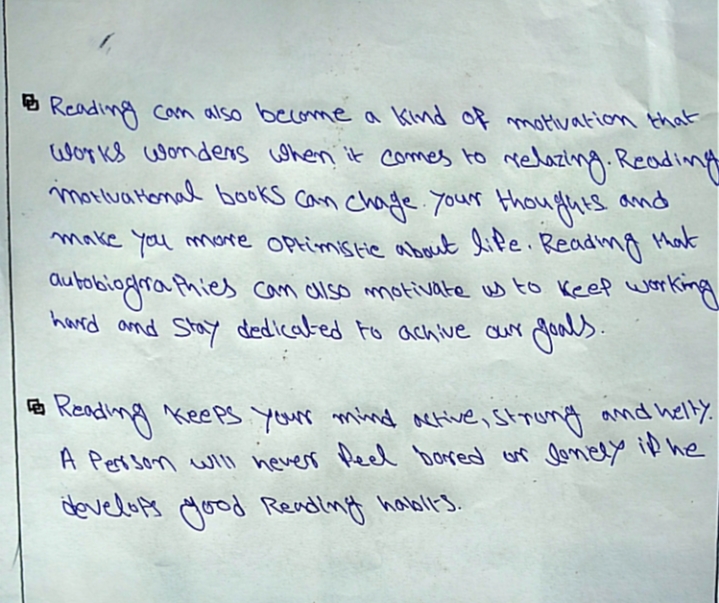 Reading can also become a kind of motivation that
works wonders when it comes to relazing. Reading
motivational books can chage your thoughts and
make you more optimistic about life. Reading that
autobiographies can also motivate us to keep working
hard and stay dedicated to achive our goals.
Reading keeps your mind active, strong and helty.
A Person will never feel bored or lonely if he
develops good Reading habits.